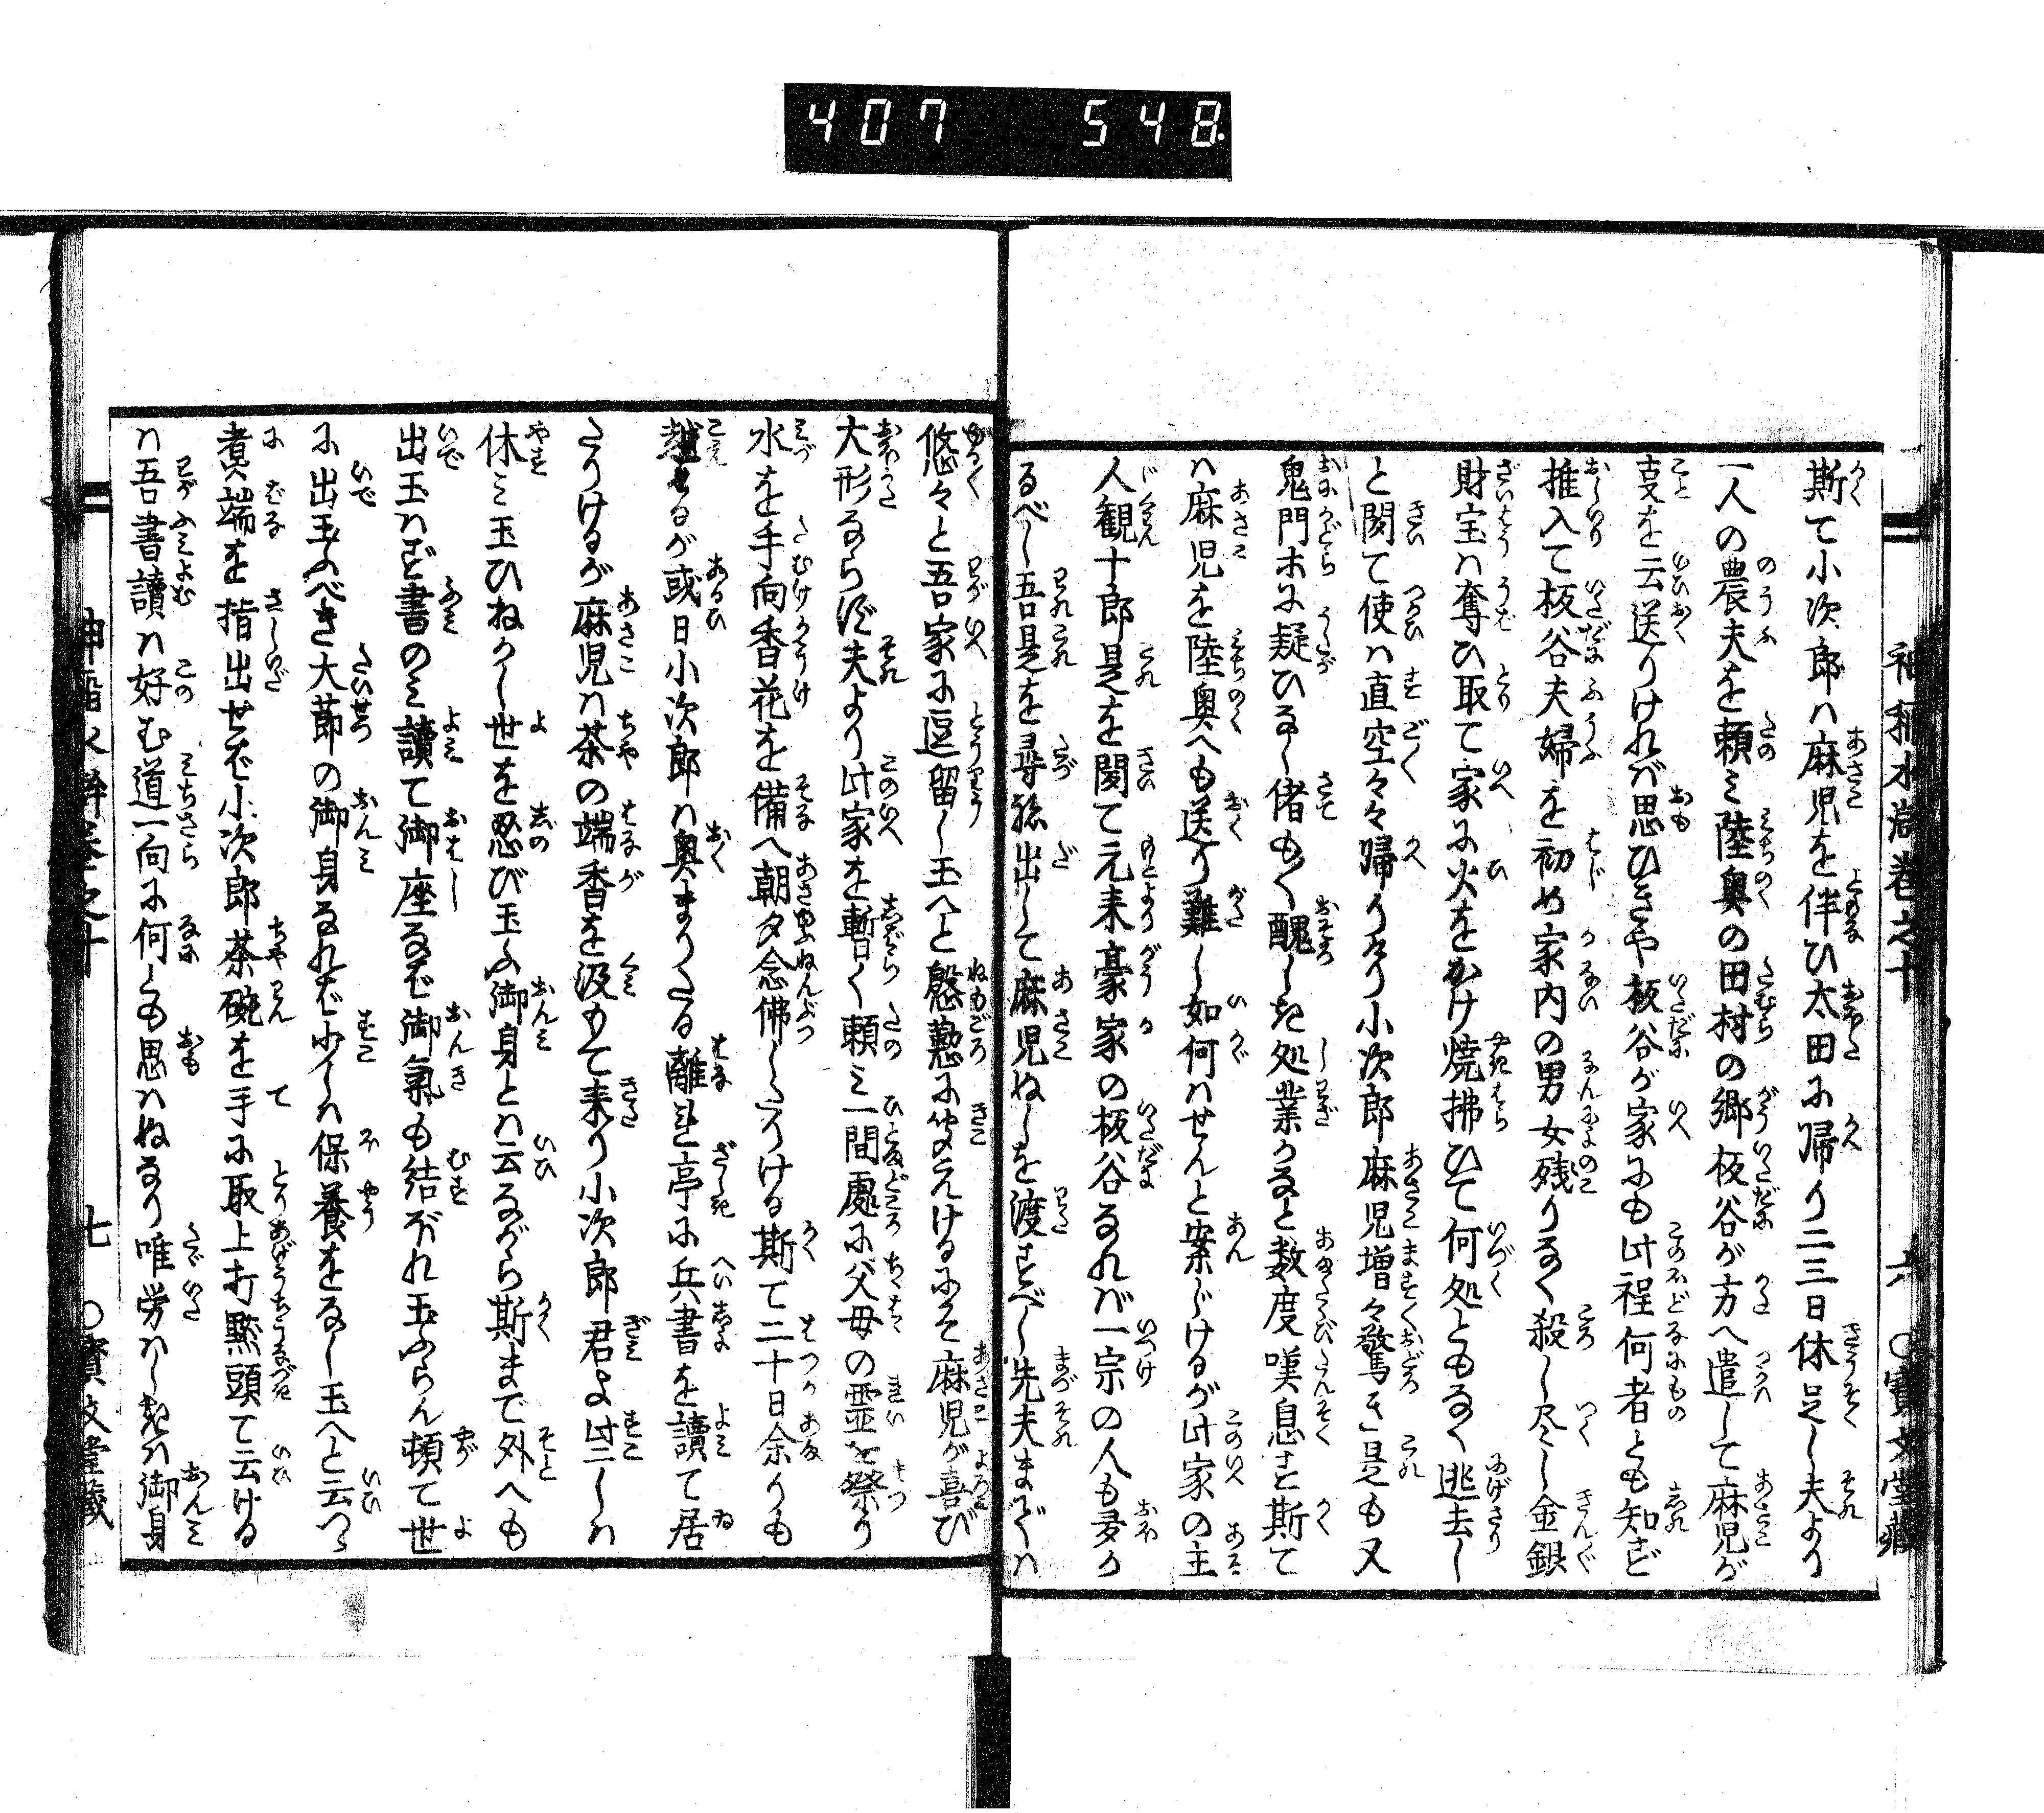 407 548.
斯て小次郎ハ麻児を伴ひ太田に帰り二三日休足し夫より
一人の農夫を頼ミ陸奥の田村の郷板谷が方へ遣して麻児が
支を云送りけれバ思ひきや板谷が家にも此程何者とも知ず
推入て板谷夫婦を初め家内の男女残りなく殺し尽し金銀
財宝ハ奪ひ取て家に火をかけ焼拂ひて何処ともなく逃去し
と聞て使ハ直空々々帰りけり小次郎麻児増々驚き是も又
鬼門ホに疑ひなし偖も〳〵醜しき処業かなと数度嘆息す斯て
ハ麻児を陸奥へも送り難し如何ハせんと案じけるが此家の主
人観十郎是を聞て元来豪家の板谷なれバ一宗の人も多か
るべし吾是を尋孫出して麻児ぬしを渡すべし先夫までハ
悠々と吾家に逗留し玉へと慇懃に聞えけるにそ麻児が喜び
大形ならず夫より此家を暫く頼ミ一間處に父母の霊を祭り
水を手向香花を備へ朝夕念佛したりける斯て二十日余りも
越けるが或日小次郎ハ奥まりたる離れ亭に兵書を讀て居
たりけるが麻児ハ茶の端香を汲もて来り小次郎君よ此ニしハ
休ミ玉ひねかし世を忍び玉ふ御身とハ云ながら斯まで外へも
出玉ハず書のミ讀て御座なバ御氣も結ぼれ玉ふらん頓て世
に出玉ふべき大節の御身なれバ少しハ保養をなし玉へと云つゝ
煮端を指出せバ小次郎茶碗を手に取上打黙頭て云ける
ハ吾書讀ハ好む道一向に何とも思ハぬなり唯労ハしきハ御身
巻之十
六
○寳文堂藏
七
○寳文堂藏